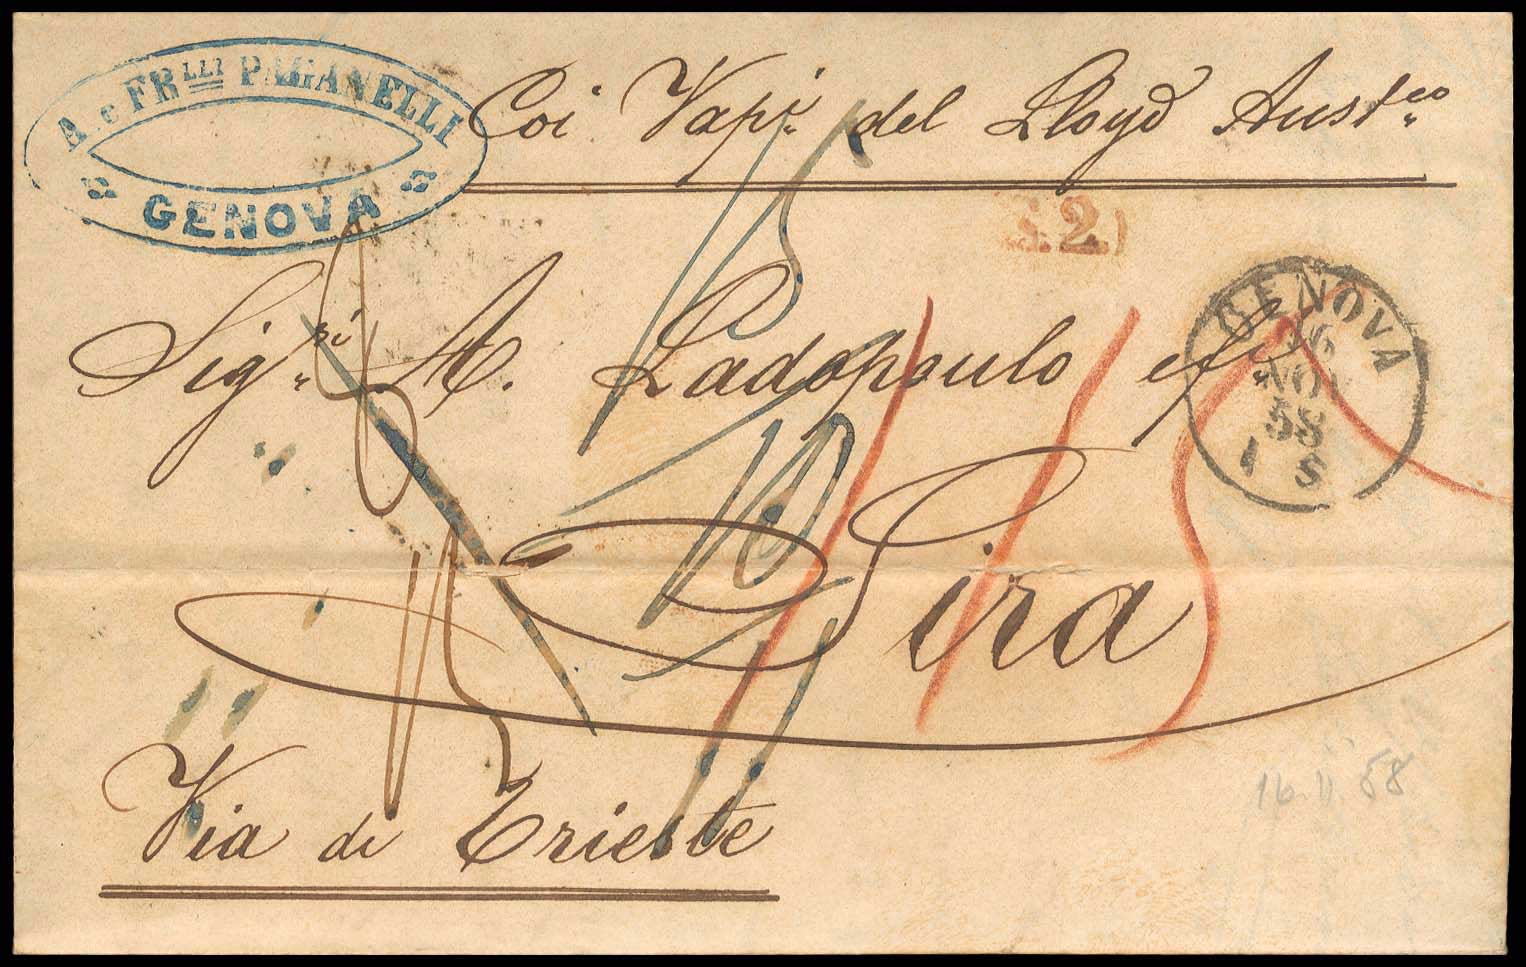 A. e FR.LLI PAGANELLI
GENOVA
Coi Vap.i del Lloyd Aust.co
2.
GENOVA
16
NOV
58
1 S
Sig.ri A. Ladopoulo
10
15
Sira
15
Via di Trieste
16.11.58